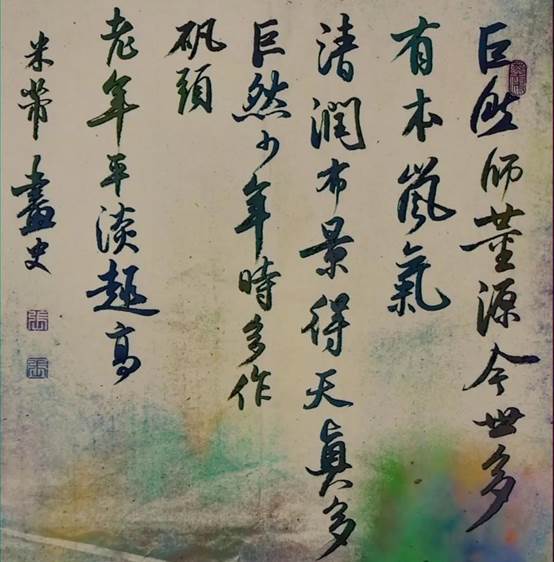 巨然师董源今世多
有本嵐氣
清潤布景得天真多
巨然少年時多作
矾頭
老年平淡趣高
米芾畫史